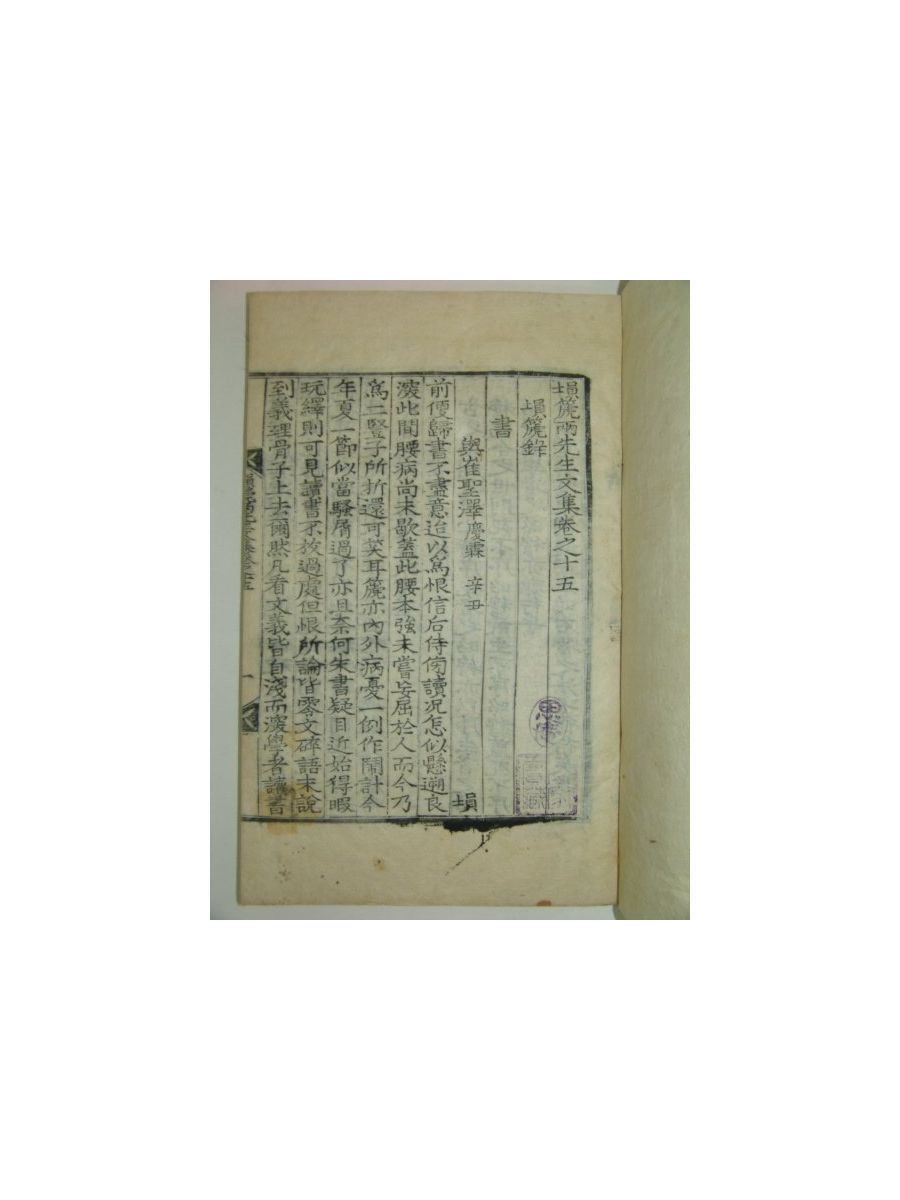 塤篪兩先生文集卷之十五
塤篪錄
書
與崔聖澤慶霖 辛丑 塤
前便歸書不盡意迨以爲恨信后侍傍讀况怎似懸遡良
深此間腰病尚未歇蓋此腰本強未嘗妄屈於人而今乃
爲二豎子所折還可笑耳篪亦內外病憂一例作鬧計今
年夏一節似當騷屑過了亦且奈何朱書疑目近始得暇
玩繹則可見讀書不放過處但恨所論皆零文碎語未說
到義理骨子上去爾然凡看文義皆自淺而深學者讀書